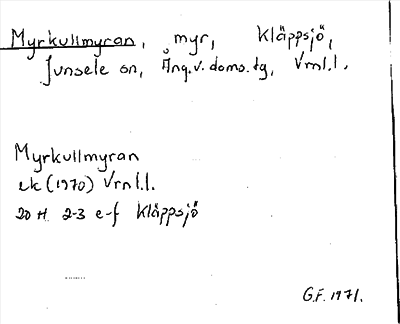 Myrkullmyran, myr, Kläppsjö,
Junsele sn, Ång.v.doms.tg, Vrnl.l.
Myrkullmyran
ek (1970) Vrnl.l.
20 H 2-3 e-f Kläppsjö
G.F. 1971.